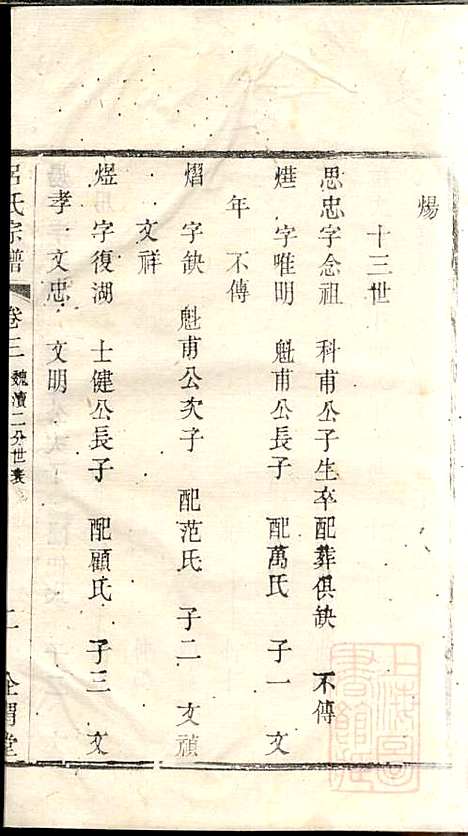 煬
十三世
思忠 字念祖 科甫公子生卒配葬俱缺 不傳
燁 字唯明 魁甫公長子 配萬氏 子一 文
年 不傳
熠 字缺 魁甫公次子 配范氏 子二 文禎
文祥
煜 字復湖 士健公長子 配顧氏 子三 文
孝 文忠 文明
呂氏宗譜 卷三 魏瀆二分世表 二 全謂堂
上海圖書館藏